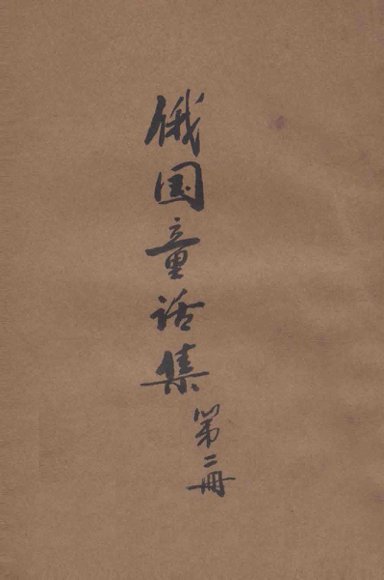 俄国童话集
第二冊